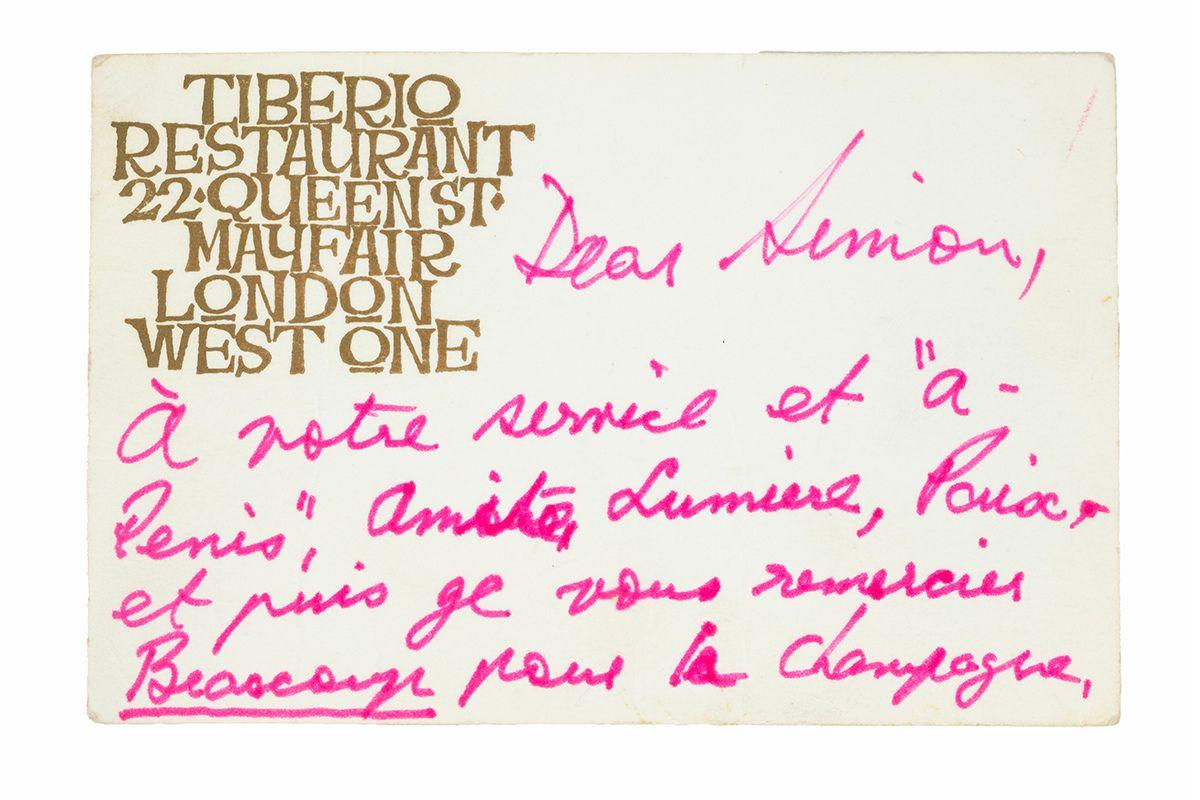 TIBERIO
RESTAURANT
22·QUEEN ST·
MAYFAIR
LONDON
WEST ONE
Dear Simon,
À notre service et "a-
Penis", Amitié, Lumiere, Paix,
et puis ge vous remercier
Beascoup pour la Champagne,